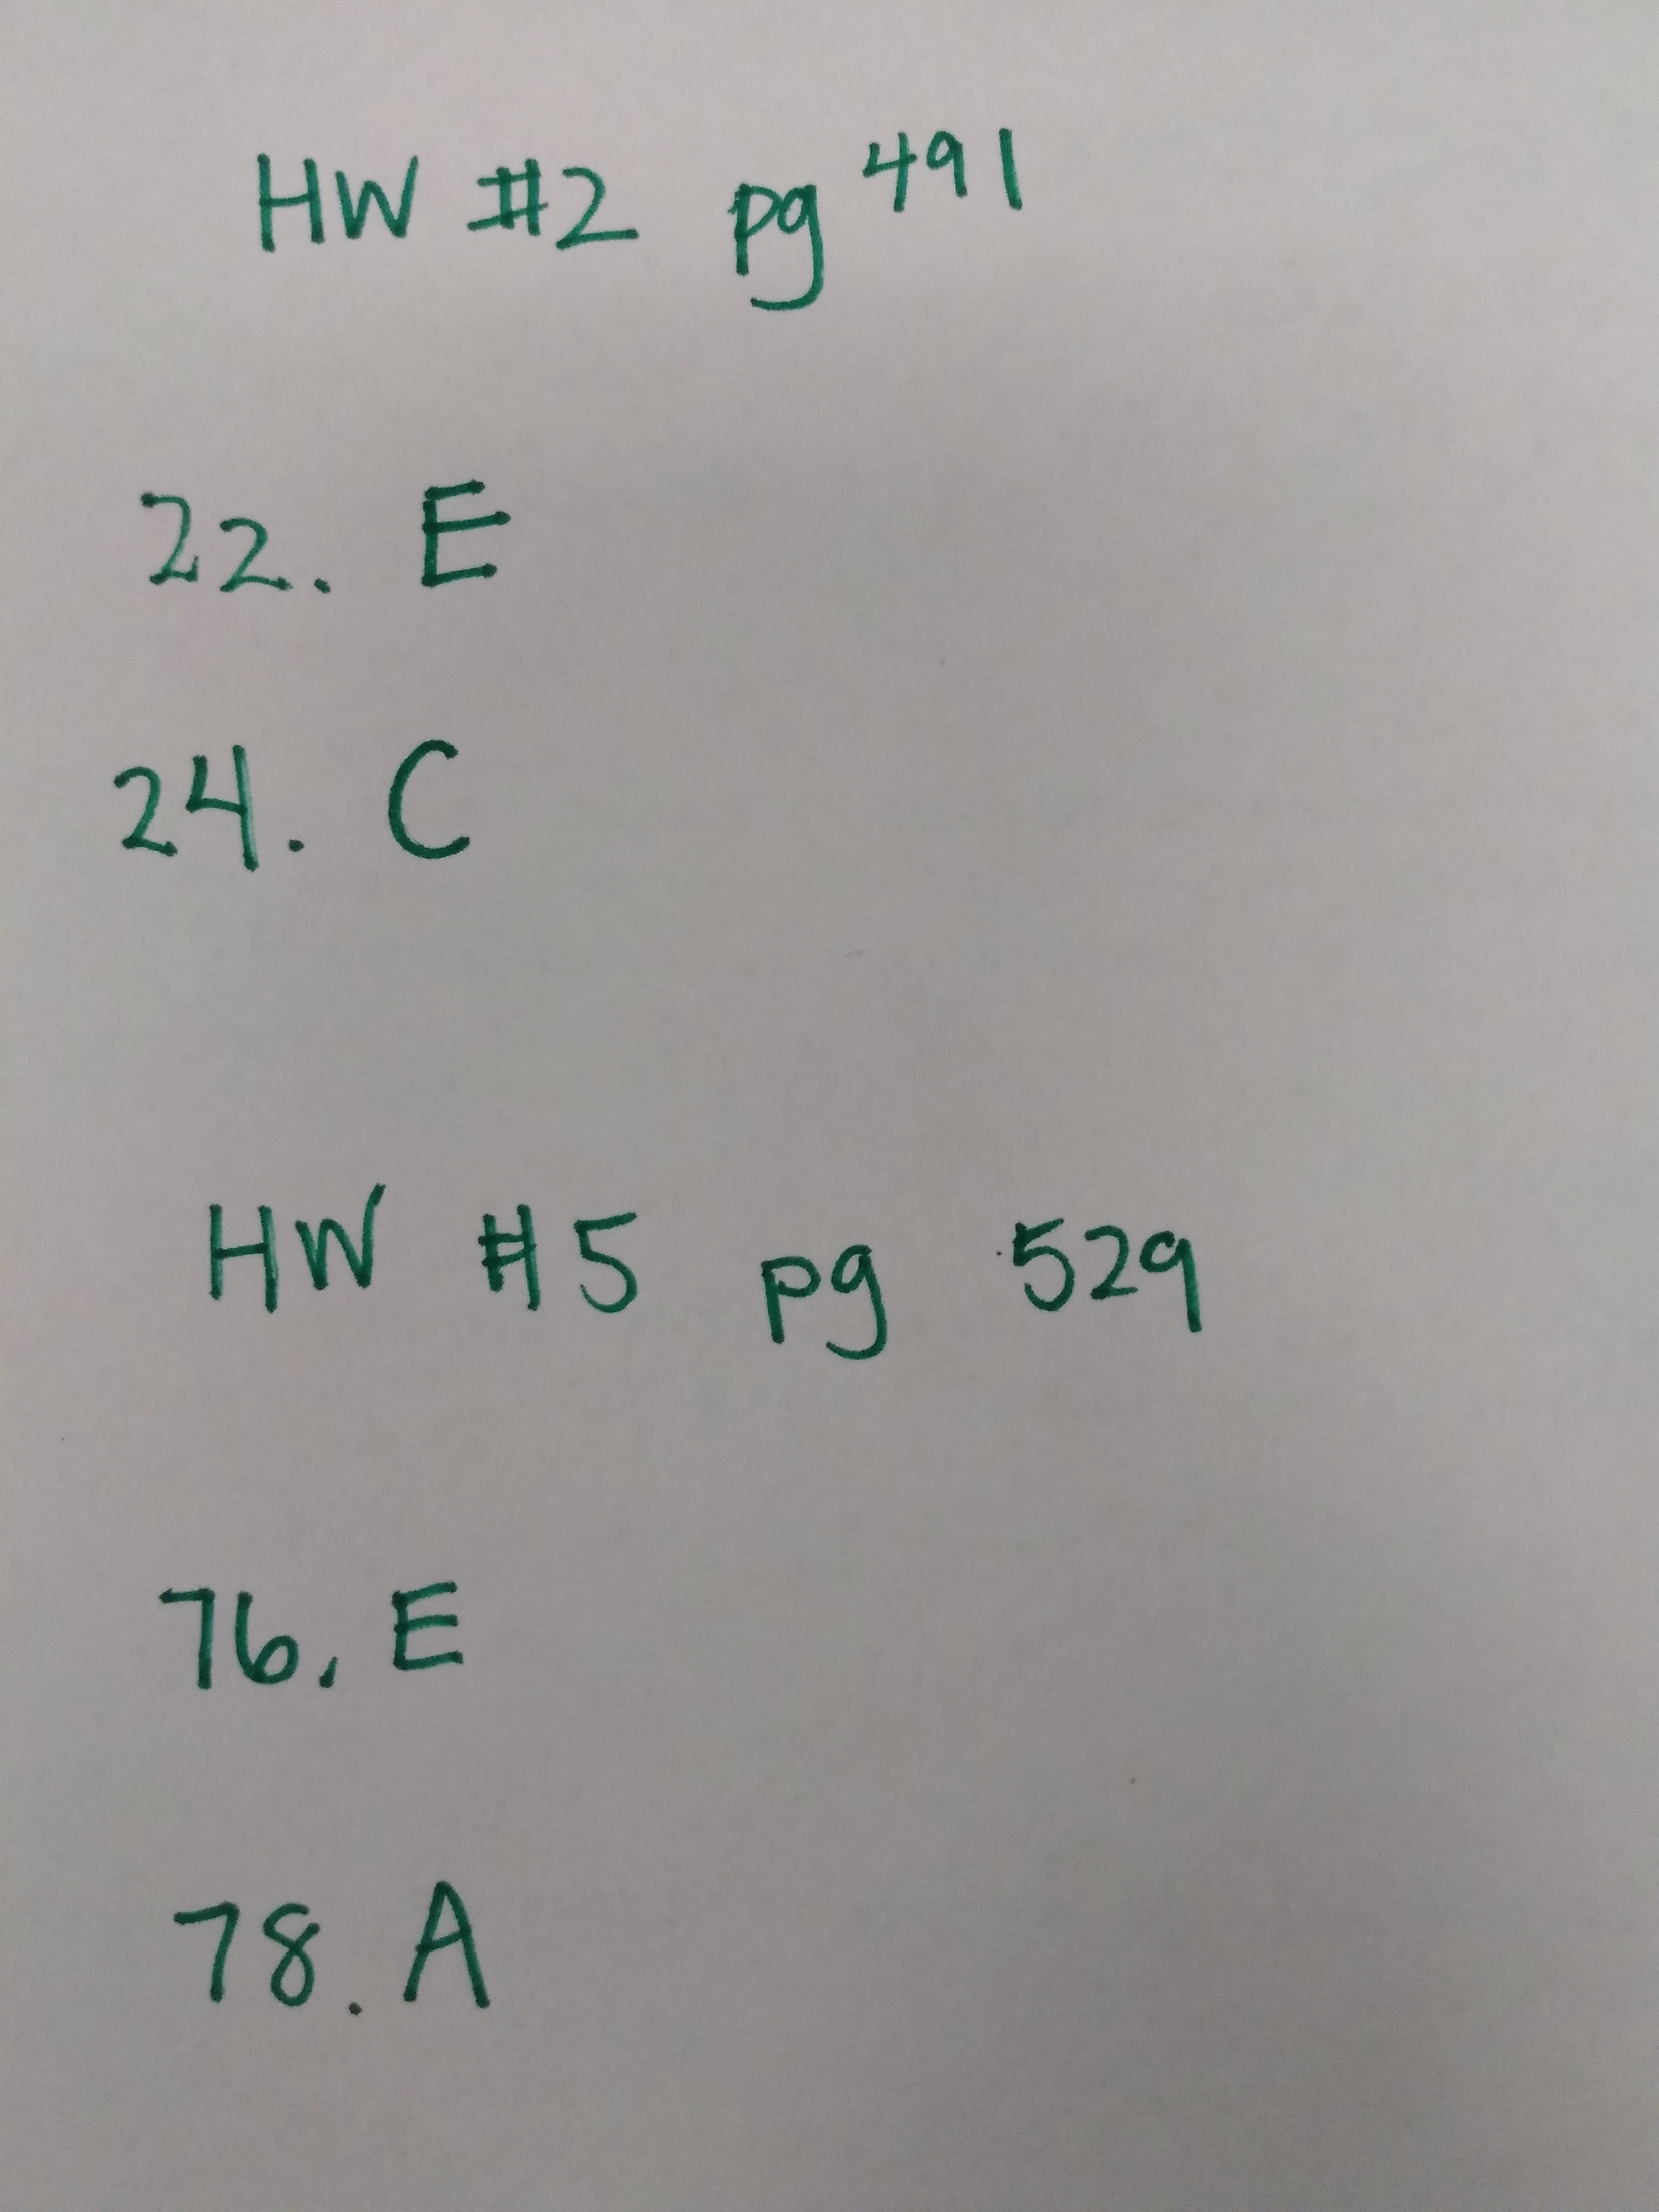 HW #2 pg 491
22. E
24. C
HW #5 pg 529
76. E
78. A